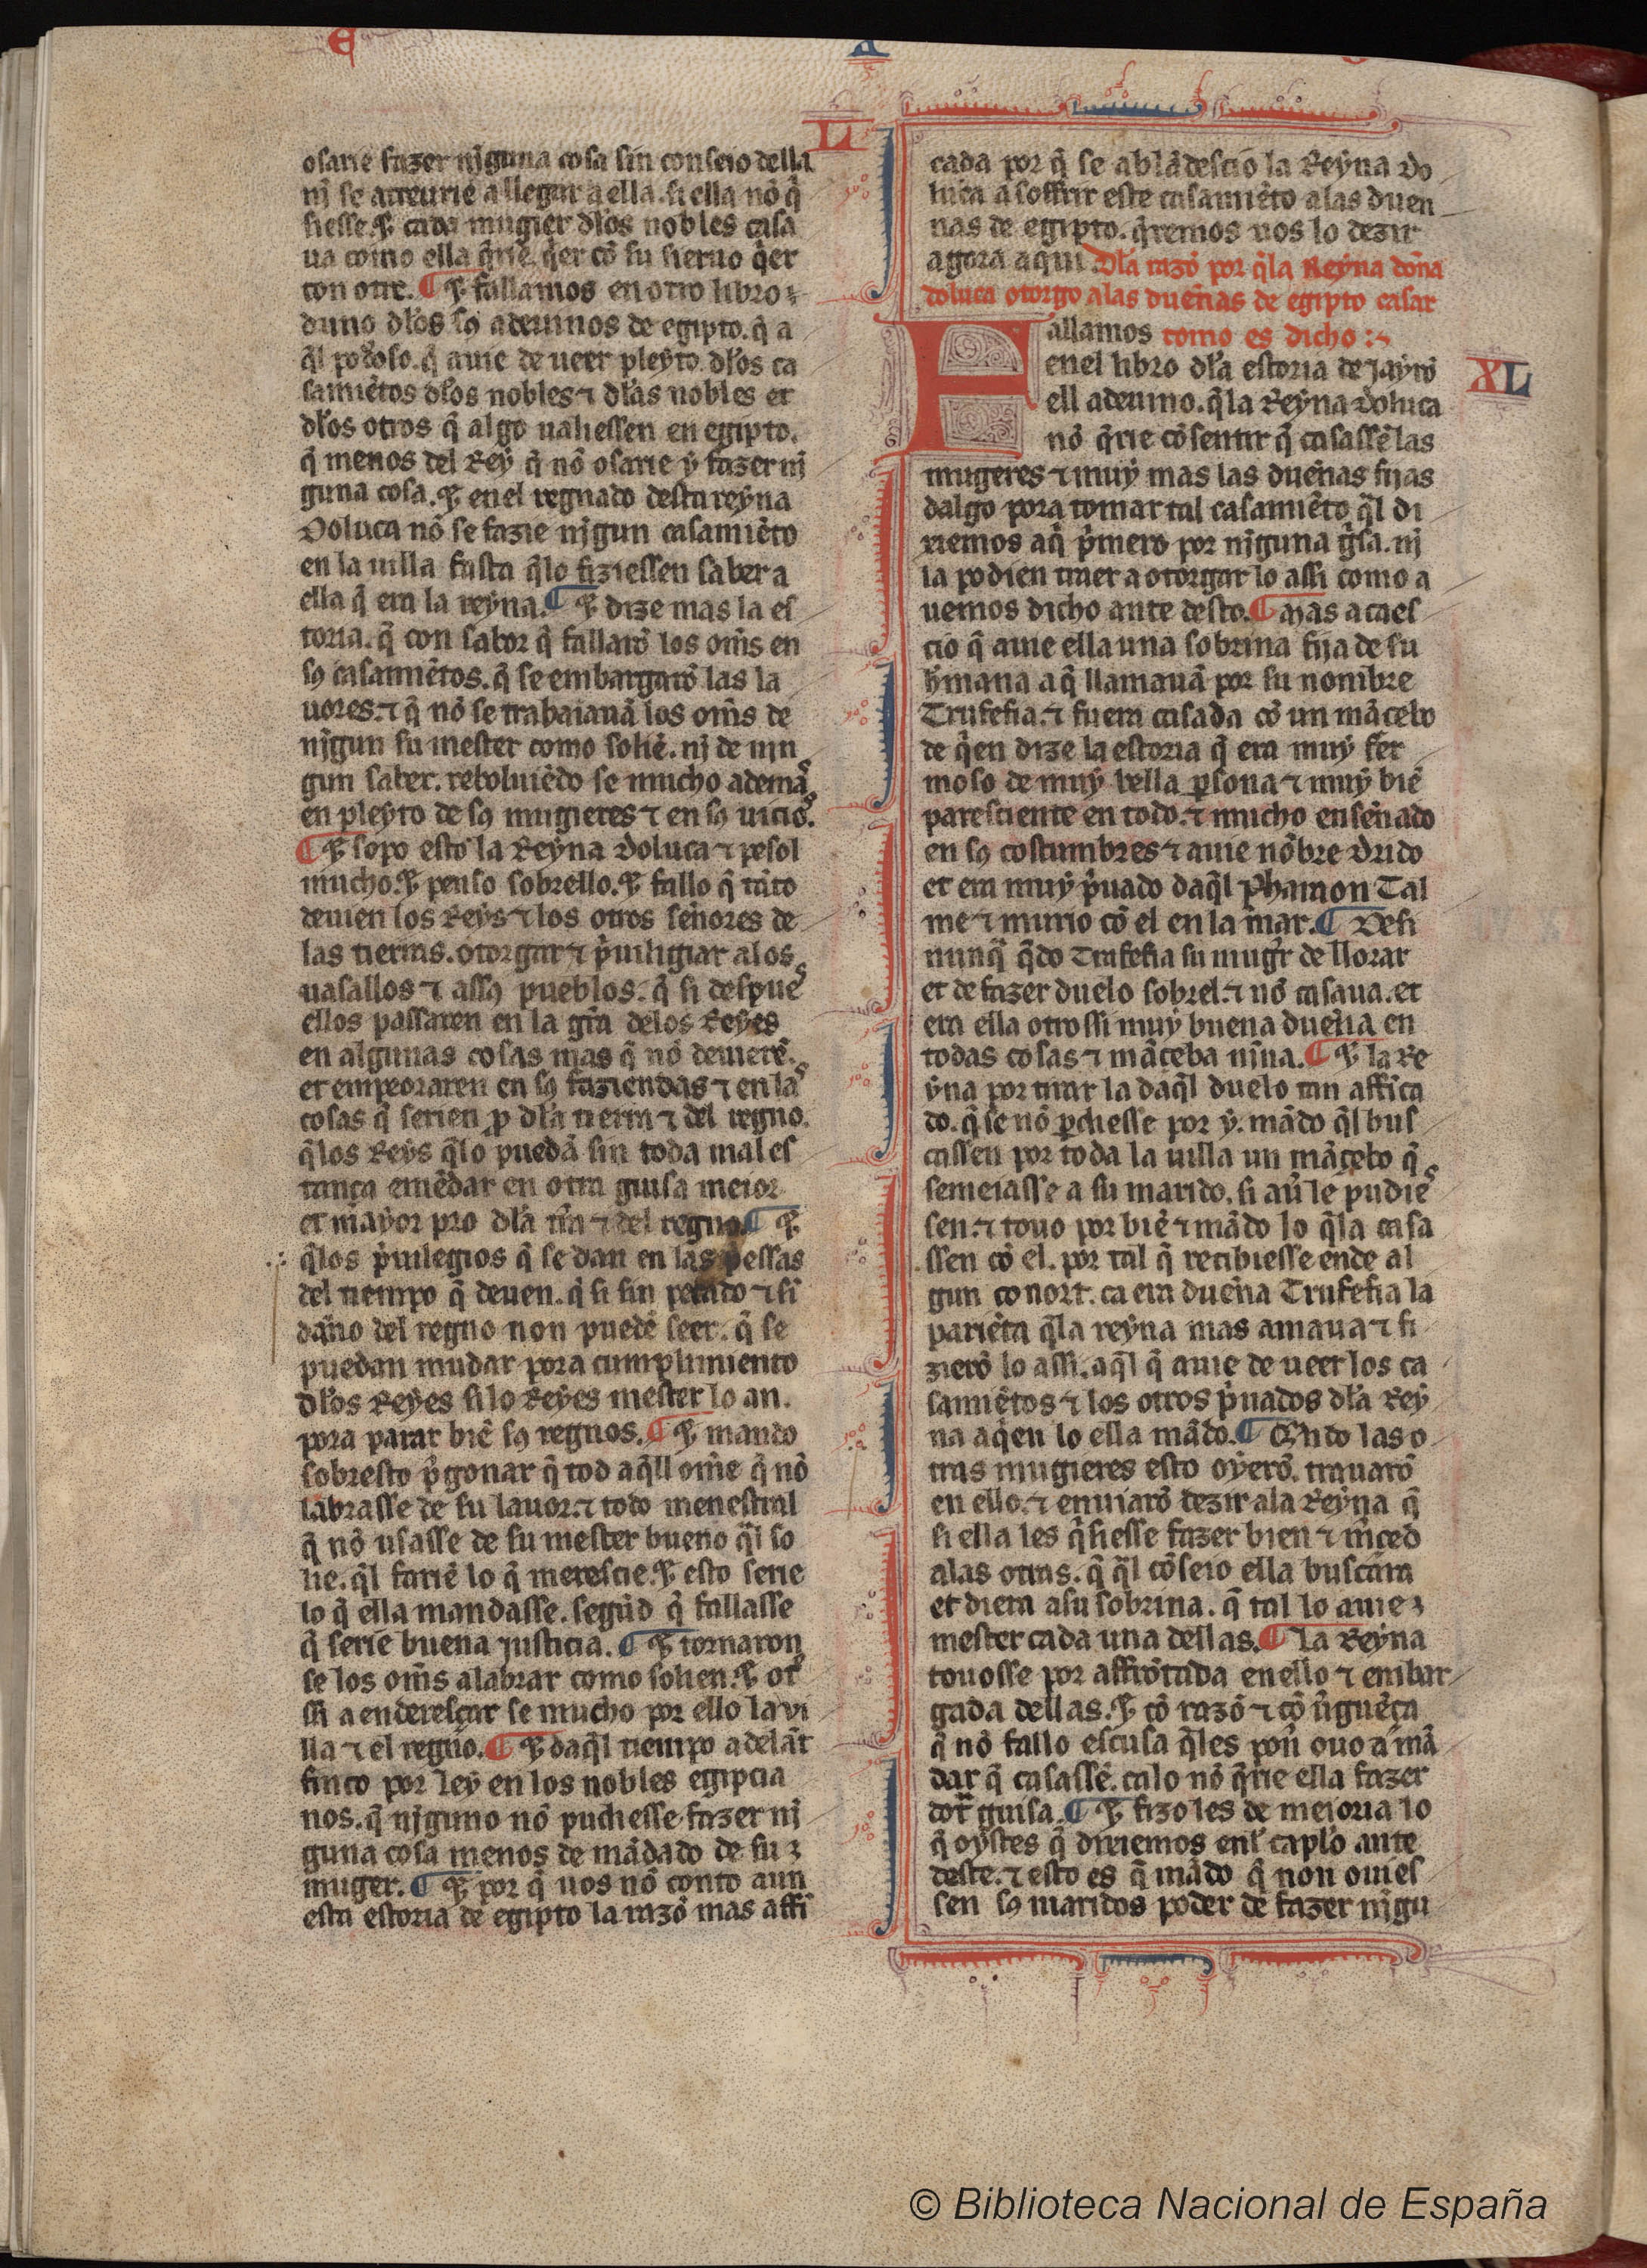 E
L
osarie fazer njguna cosa sin conseio della
nj se atreurie allegar a ella. si ella nõ q̃
siesse. ⁊ cada mugier dl̃os nobles casa
ua como ella q̃rie. q̃er cõ su sieruo q̃er
con otre. ¶ ⁊ fallamos en otro libro
duno dl̃os sꝯ adeuinos de egipto. q̃ a
q̃l podoso. q̃ auie de ueer pleyto. dl̃os ca
samiẽtos dl̃os nobles ⁊ dl̃as nobles et
dl̃os otros q̃ algo ualiessen en egipto.
q̃ menos del Rey q̃ nõ osarie ẏ fazer nj
guna cosa. ⁊ enel regnado desta reẏna
Doluca nõ se fazie njgun casamiẽto
en la uilla fasta q̃lo fiziessen saber a
ella q̃ era la reẏna. ¶ ⁊ dize mas la es
toria. q̃ con sabor q̃ fallarõ los om̃s en
sꝯ casamiẽtos. q̃ se embargarõ las la
uores. ⁊ q̃ nõ se trabaiauã los om̃s de
njgun su mester como soliẽ. nj de njn
gun saber. reboluiẽdo se mucho ademas
en pleyto de sꝯ mugieres ⁊ en sꝯ uicios.
¶ ⁊ sopo esto la Reẏna doluca ⁊ pesol
mucho. ⁊ penso sobrello. ⁊ fallo q̃ tãto
deuien los Reẏs ⁊ los otros señores de
las tierras. otorgar ⁊ p̃uiligiar a los
uasallos ⁊ assꝯ pueblos. q̃ si despues
ellos passaren en la gr̃a delos Reẏes
en algunas cosas mas q̃ nõ deuierẽ.
et empeoraren en sꝯ faziendas ⁊ en las
cosas q̃ serien p̃ dl̃a tierra ⁊ del regno.
q̃los Reẏs q̃lo puedã sin toda mal es
tança emẽdar en otra guisa meior
et mayor pro dl̃a tr̃a ⁊ del regno. ¶ ⁊
q̃los p̃uilegios q̃ se dan en las p̃essas
del tiempo q̃ deuen. q̃ si sin pecado ⁊ si
daño del regno non puedẽ seer. q̃ se
puedan mudar pora cumplimiento
dl̃os Reẏes silo Reẏes mester lo an.
pora parar biẽ sꝯ regnos. ¶ ⁊ mando
sobresto p̃gonar q̃ tod aq̃ll om̃e q̃ nõ
labrasse de su lauor. ⁊ todo menestral
q̃ nõ usasse de su mester bueno q̃l so
lie. q̃l fariẽ lo q̃ merescie. ⁊ esto serie
lo q̃ ella mandasse. segũd q̃ fallasse
q̃ serie buena justicia. ¶ ⁊ tornaron
se los om̃s alabrar como solien. ⁊ ot
ssi a enderesçar se mucho por ello la vi
lla ⁊ el regno. ¶ ⁊ daq̃l tiempo adelãt
finco por ley en los nobles egipcia
nos. q̃ njguno nõ pudiesse fazer nj
guna cosa menos de mãdado de su
muger. ¶ ⁊ por q̃ uos nõ conto aun
esta estoria de egipto la razõ mas affi
cada por q̃ se ablãdescio la Reẏna do
luca a soffrir este casamiẽto alas duen
nas de egipto. q̃remos uos lo dezir
agora aqui. Dl̃a razõ por q̃la Reẏna doña
doluca otorgo alas dueñas de egipto casar
Fallamos como es dicho :~
XL
enel libro dl̃a estoria de Jayro
ell adeuino. q̃la Reẏna doluca
nõ q̃rie cõsentir q̃ casassẽ las
mugeres ⁊ muẏ mas las dueñas fijas
dalgo pora tomar tal casamiẽto q̃l di
xiemos aq̃ p̃mero por njguna gr̃a. nj
la podien traer a otorgar lo assi como a
uemos dicho ante desto. ¶ Mas acaes
cio q̃ auie ella una sobrina fija de su
hr̃mana a q̃ llamauã por su nombre
Trufesia. ⁊ fuera casada cõ un mãcebo
de q̃en dize la estoria q̃ era muẏ fer
moso de muẏ bella ꝑsona ⁊ muẏ biẽ
paresciente en todo. ⁊ mucho enseñado
en sꝯ costumbres ⁊ auie nõbre Drido
et era muẏ p̃uado daq̃l Pharaon Tal
me ⁊ murio cõ el en la mar. ¶ Desi
nunq̃ q̃do Trufesia su mugr̃ de llorar
et de fazer duelo sobrel. ⁊ nõ casaua. et
era ella otrossi muẏ buena dueña en
todas cosas ⁊ mãceba niña. ¶ ⁊ la Re
ẏna por tirar la daq̃l duelo tan affica
do. q̃ se nõ ꝑdiesse por ẏ. mãdo q̃l bus
cassen por toda la uilla un mãcebo q̃
semeiasse a su marido. si aũ le pudies
sen. ⁊ touo por biẽ ⁊ mãdo lo q̃la casa
ssen cõ el. por tal q̃ recibiesse ende al
gun conort. ca era dueña Trufesia la
pariẽta q̃la reẏna mas amaua ⁊ fi
zierõ lo assi. aq̃l q̃ auie de ueer los ca
samiẽtos ⁊ los otros p̃uados dl̃a Reẏ
na aq̃en lo ella mãdo. ¶ Qñdo las o
tras mugieres esto oyerõ. trauarõ
en ello. ⁊ enuiarõ dezir ala Reẏna q̃
si ella les q̃siesse fazer bien ⁊ mr̃ced
alas otras. q̃ q̃l cõseio ella buscara
et diera asu sobrina. q̃ tal lo auie
mester cada una dellas. ¶ La Reẏna
touosse por affrõtada en ello ⁊ embar
gada dellas. ⁊ cõ razõ ⁊ cõ ũguẽça
q̃ nõ fallo escusa q̃les poñ ouo a mã
dar q̃ casassẽ. calo nõ q̃rie ella fazer
dot̃ guisa. ¶ ⁊ fizo les de meioria lo
q̃ oystes q̃ dixiemos enl̃ caplo ante
deste. ⁊ esto es q̃ mãdo q̃ non ouies
sen sꝯ maridos poder de fazer nigu
© Biblioteca Nacional de España